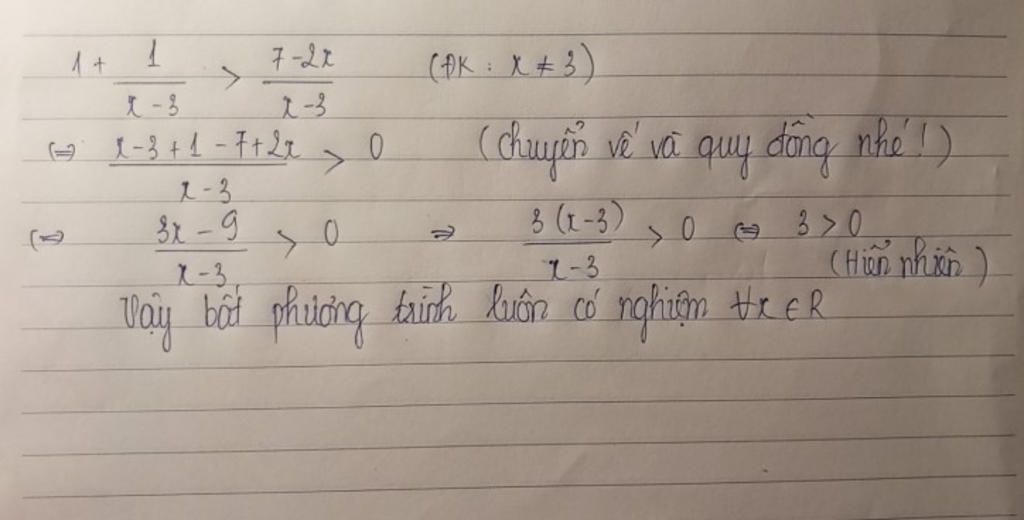 1 + \frac{1}{x-3} > \frac{7-2x}{x-3} (ĐK : x ≠ 3)
⇔ \frac{x-3+1-7+2x}{x-3} > 0 (Chuyển vế và quy đồng nhé!)
⇔ \frac{3x-9}{x-3} > 0 ⇒ \frac{3(x-3)}{x-3} > 0 ⇔ 3 > 0
(Hiển nhiên)
Vậy bất phương trình luôn có nghiệm ∀x ∈ R